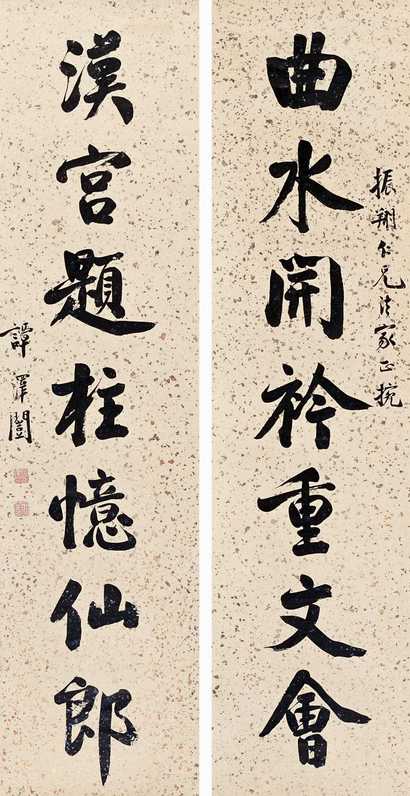 振翔仁兄法家正捥
曲水開衿重文會
漢宮題柱憶仙郎
譚澤闓